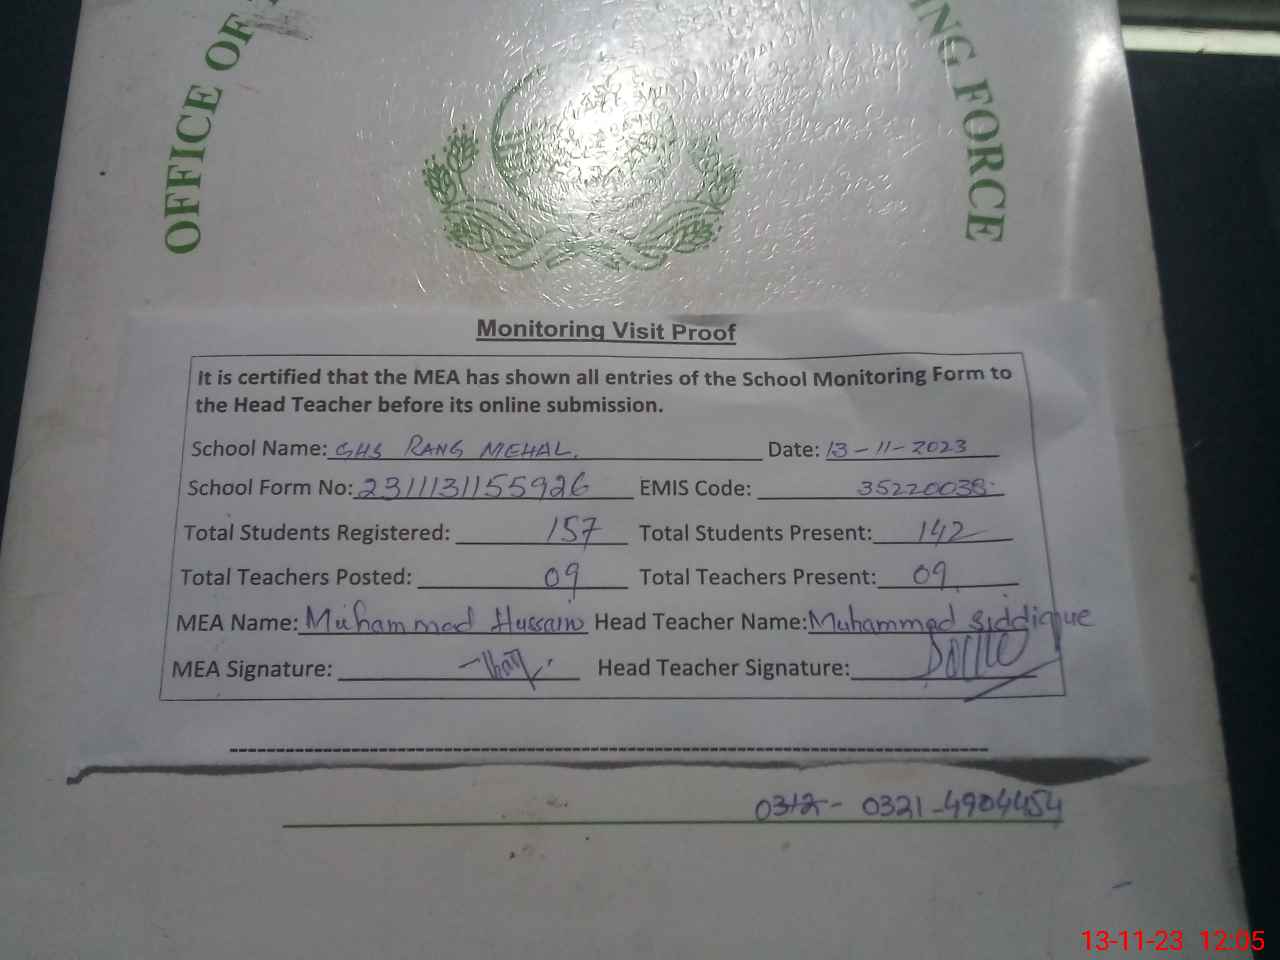 OFFICE OF
ING FORCE
Monitoring Visit Proof
It is certified that the MEA has shown all entries of the School Monitoring Form to
the Head Teacher before its online submission.
School Name: GHS RANG MEHAL. Date: 13-11-2023
School Form No: 2311131155926 EMIS Code: 35220038
Total Students Registered: 157 Total Students Present: 142
Total Teachers Posted: 09 Total Teachers Present: 09
MEA Name: Muhammad Hussain Head Teacher Name: Muhammad Siddique
MEA Signature: Head Teacher Signature:
0312- 0321-4904454
13-11-23 12:05